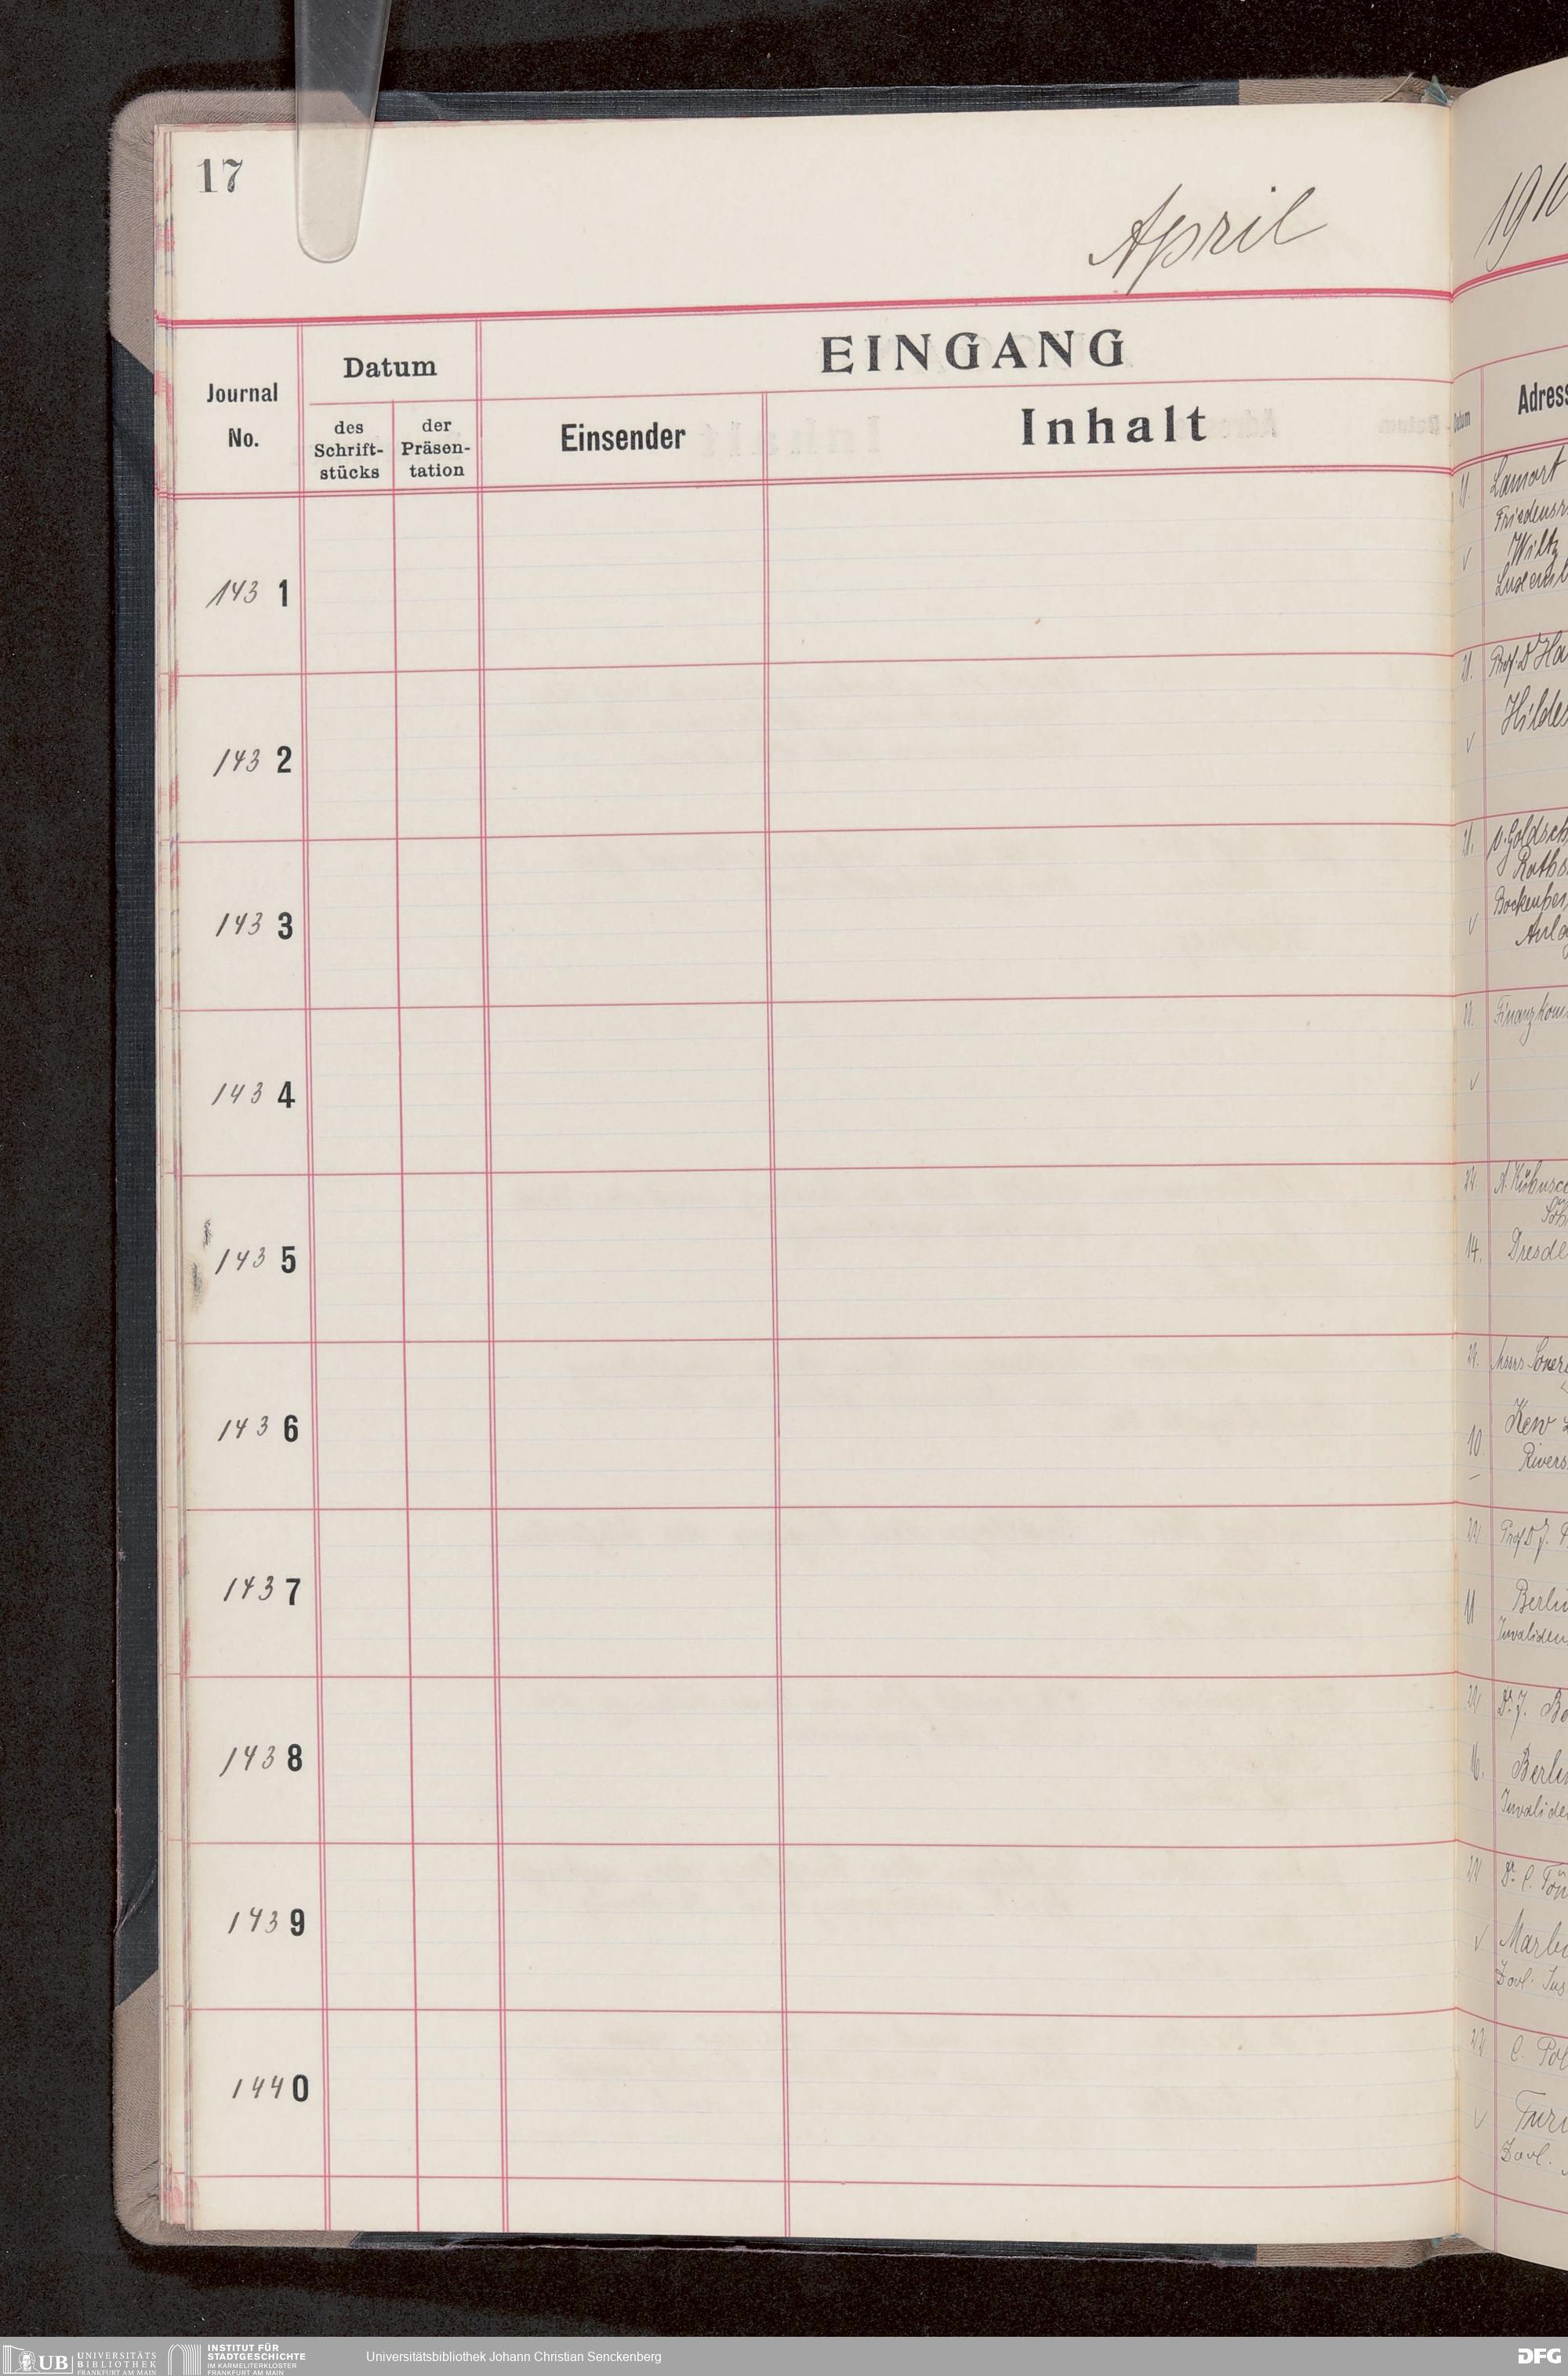 17
April
EINGANG
Journal No.
Datum
des Schrift-stücks
der Präsen-tation
Einsender
Inhalt
1431
1432
1433
1434
1435
1436
1437
1438
1439
1440
1910
Datum
Adress
11.
Lamort
Friedensr
Wiltz
Luxemb
21.
Prof. Dr Ha
Hildes
21.
v. Goldsch
Roths
Bockenhei
Anla
22.
Finanzkom
22.
14.
Dresde
22.
Messrs
10
Kew
Rivers
22
Prof Dr J. P
11
Berlin
Invaliden
22
Dr J. Bo
16.
Berlin
Invalide
22
Dr. C.
Marbu
Zool. Ins
22
C. Pol
Turi
Zool.
UB UNIVERSITÄTS BIBLIOTHEK FRANKFURT AM MAIN
INSTITUT FÜR STADTGESCHICHTE IM KARMELITERKLOSTER FRANKFURT AM MAIN
Universitätsbibliothek Johann Christian Senckenberg
DFG